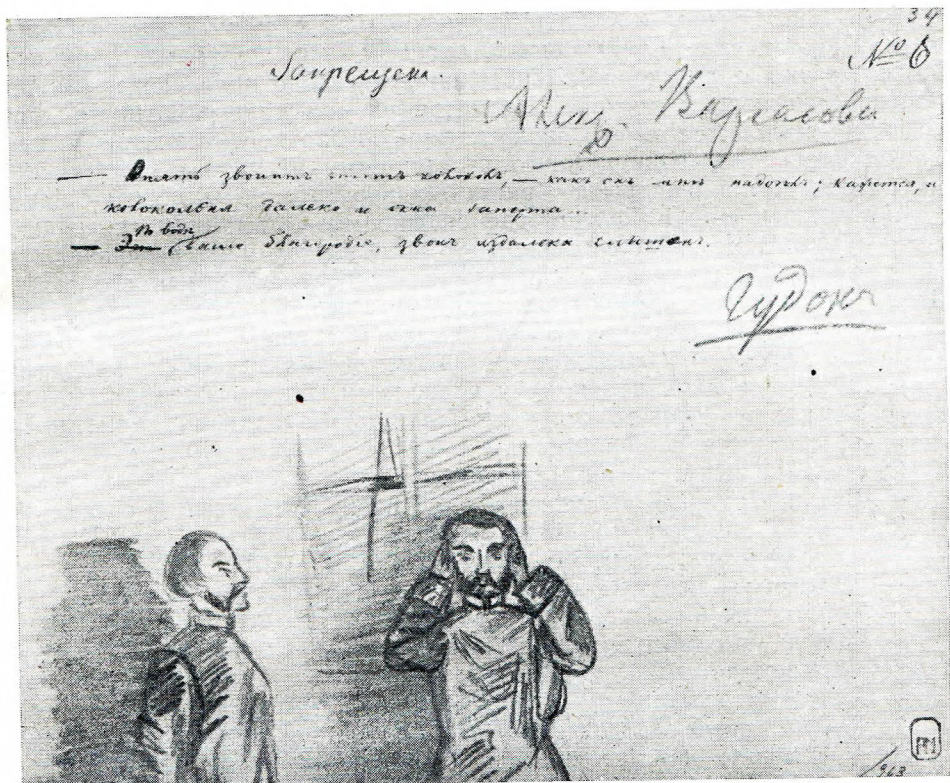 34
№ 6
Запрещена.
Алекс. Варгасова
— Опять звонитъ этотъ колоколъ, — какъ онъ мнѣ надоѣлъ; кажется, и
колокольня далеко и окна заперта...
По водѣ
— Это Ваше благородіе, звонъ издалека слышенъ.
Гудокъ